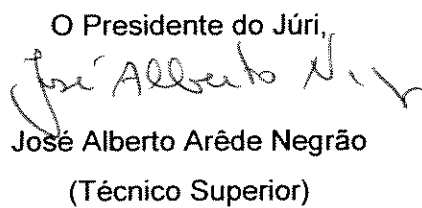 O Presidente do Júri,
José Alberto N
José Alberto Arêde Negrão
(Técnico Superior)